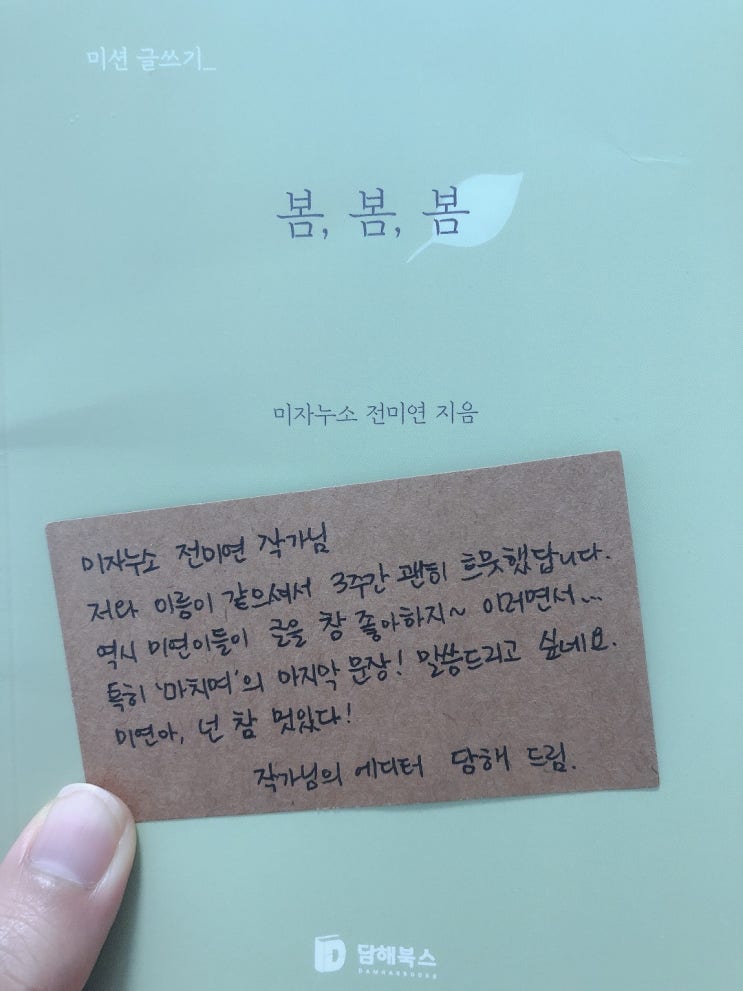 미션 글쓰기_
봄, 봄, 봄
미자누소 전미연 지음
미자누소 전미연 작가님
저와 이름이 같으셔서 3주간 괜히 흐뭇했답니다.
역시 미연이들이 글을 참 좋아하지~ 이러면서...
특히 '마치며'의 마지막 문장! 말씀드리고 싶네요.
미연아, 넌 참 멋있다!
작가님의 에디터 담해 드림.
담해북스
DAMHAEBOOKS